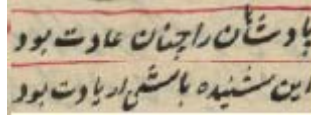 پادشاهان را چنان عادت بود
این شنیده باشی ار یادت بود